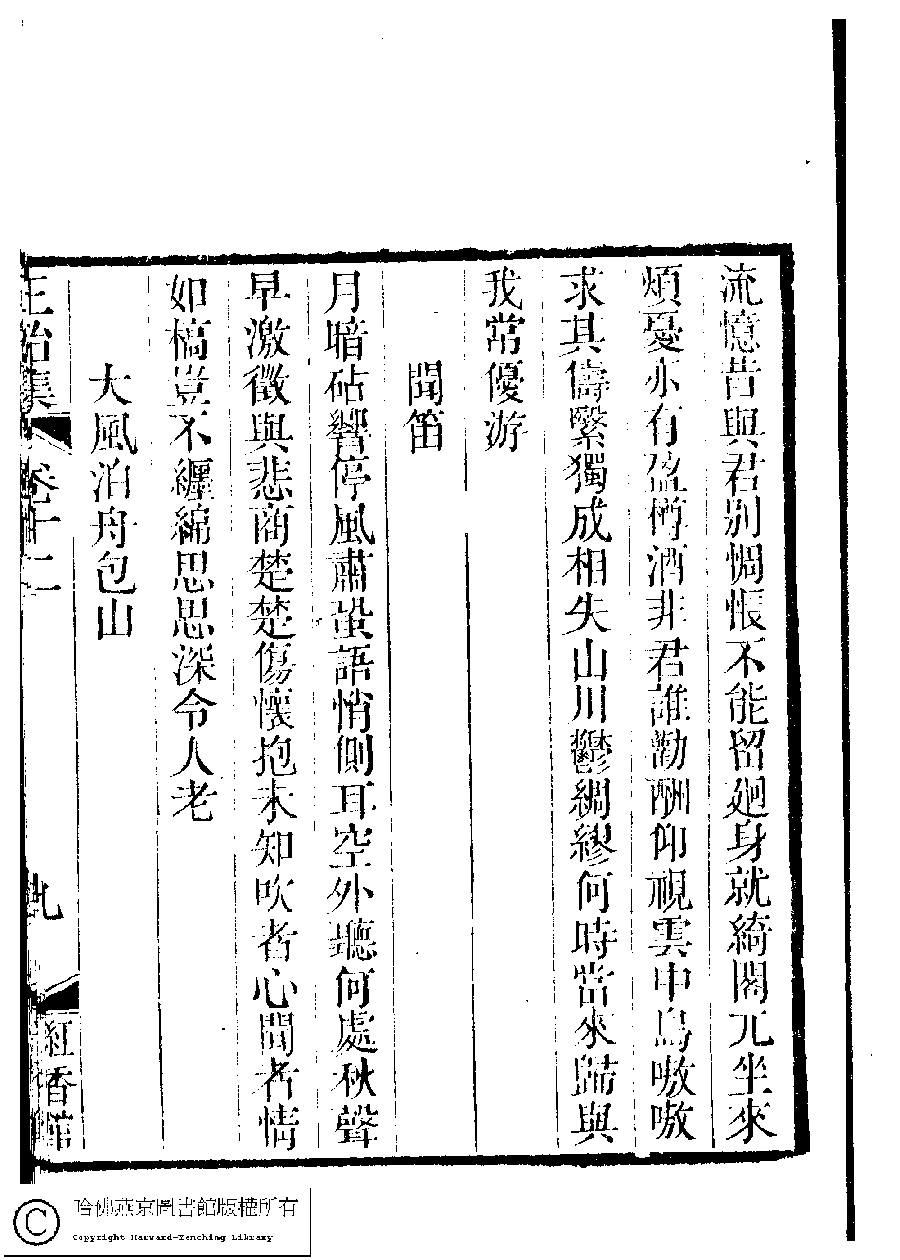 流憶昔與君别惆悵不能留廻身就綺閣兀坐來
煩憂亦有盈樽酒非君誰勸酬仰視雲中鳥嗷嗷
求其儔繄獨成相失山川鬱綢繆何時當來歸與
我常優游
聞笛
月暗砧響停風肅蛩語悄側耳空外聽何處秋聲
早激徵與悲商楚楚傷懷抱未知吹者心聞者情
如槁豈不纏綿思思深令人老
大風泊舟包山
正始集
卷十二
九
紅香館
哈佛燕京圖書館版權所有
Copyright Harvard-Yenching Library